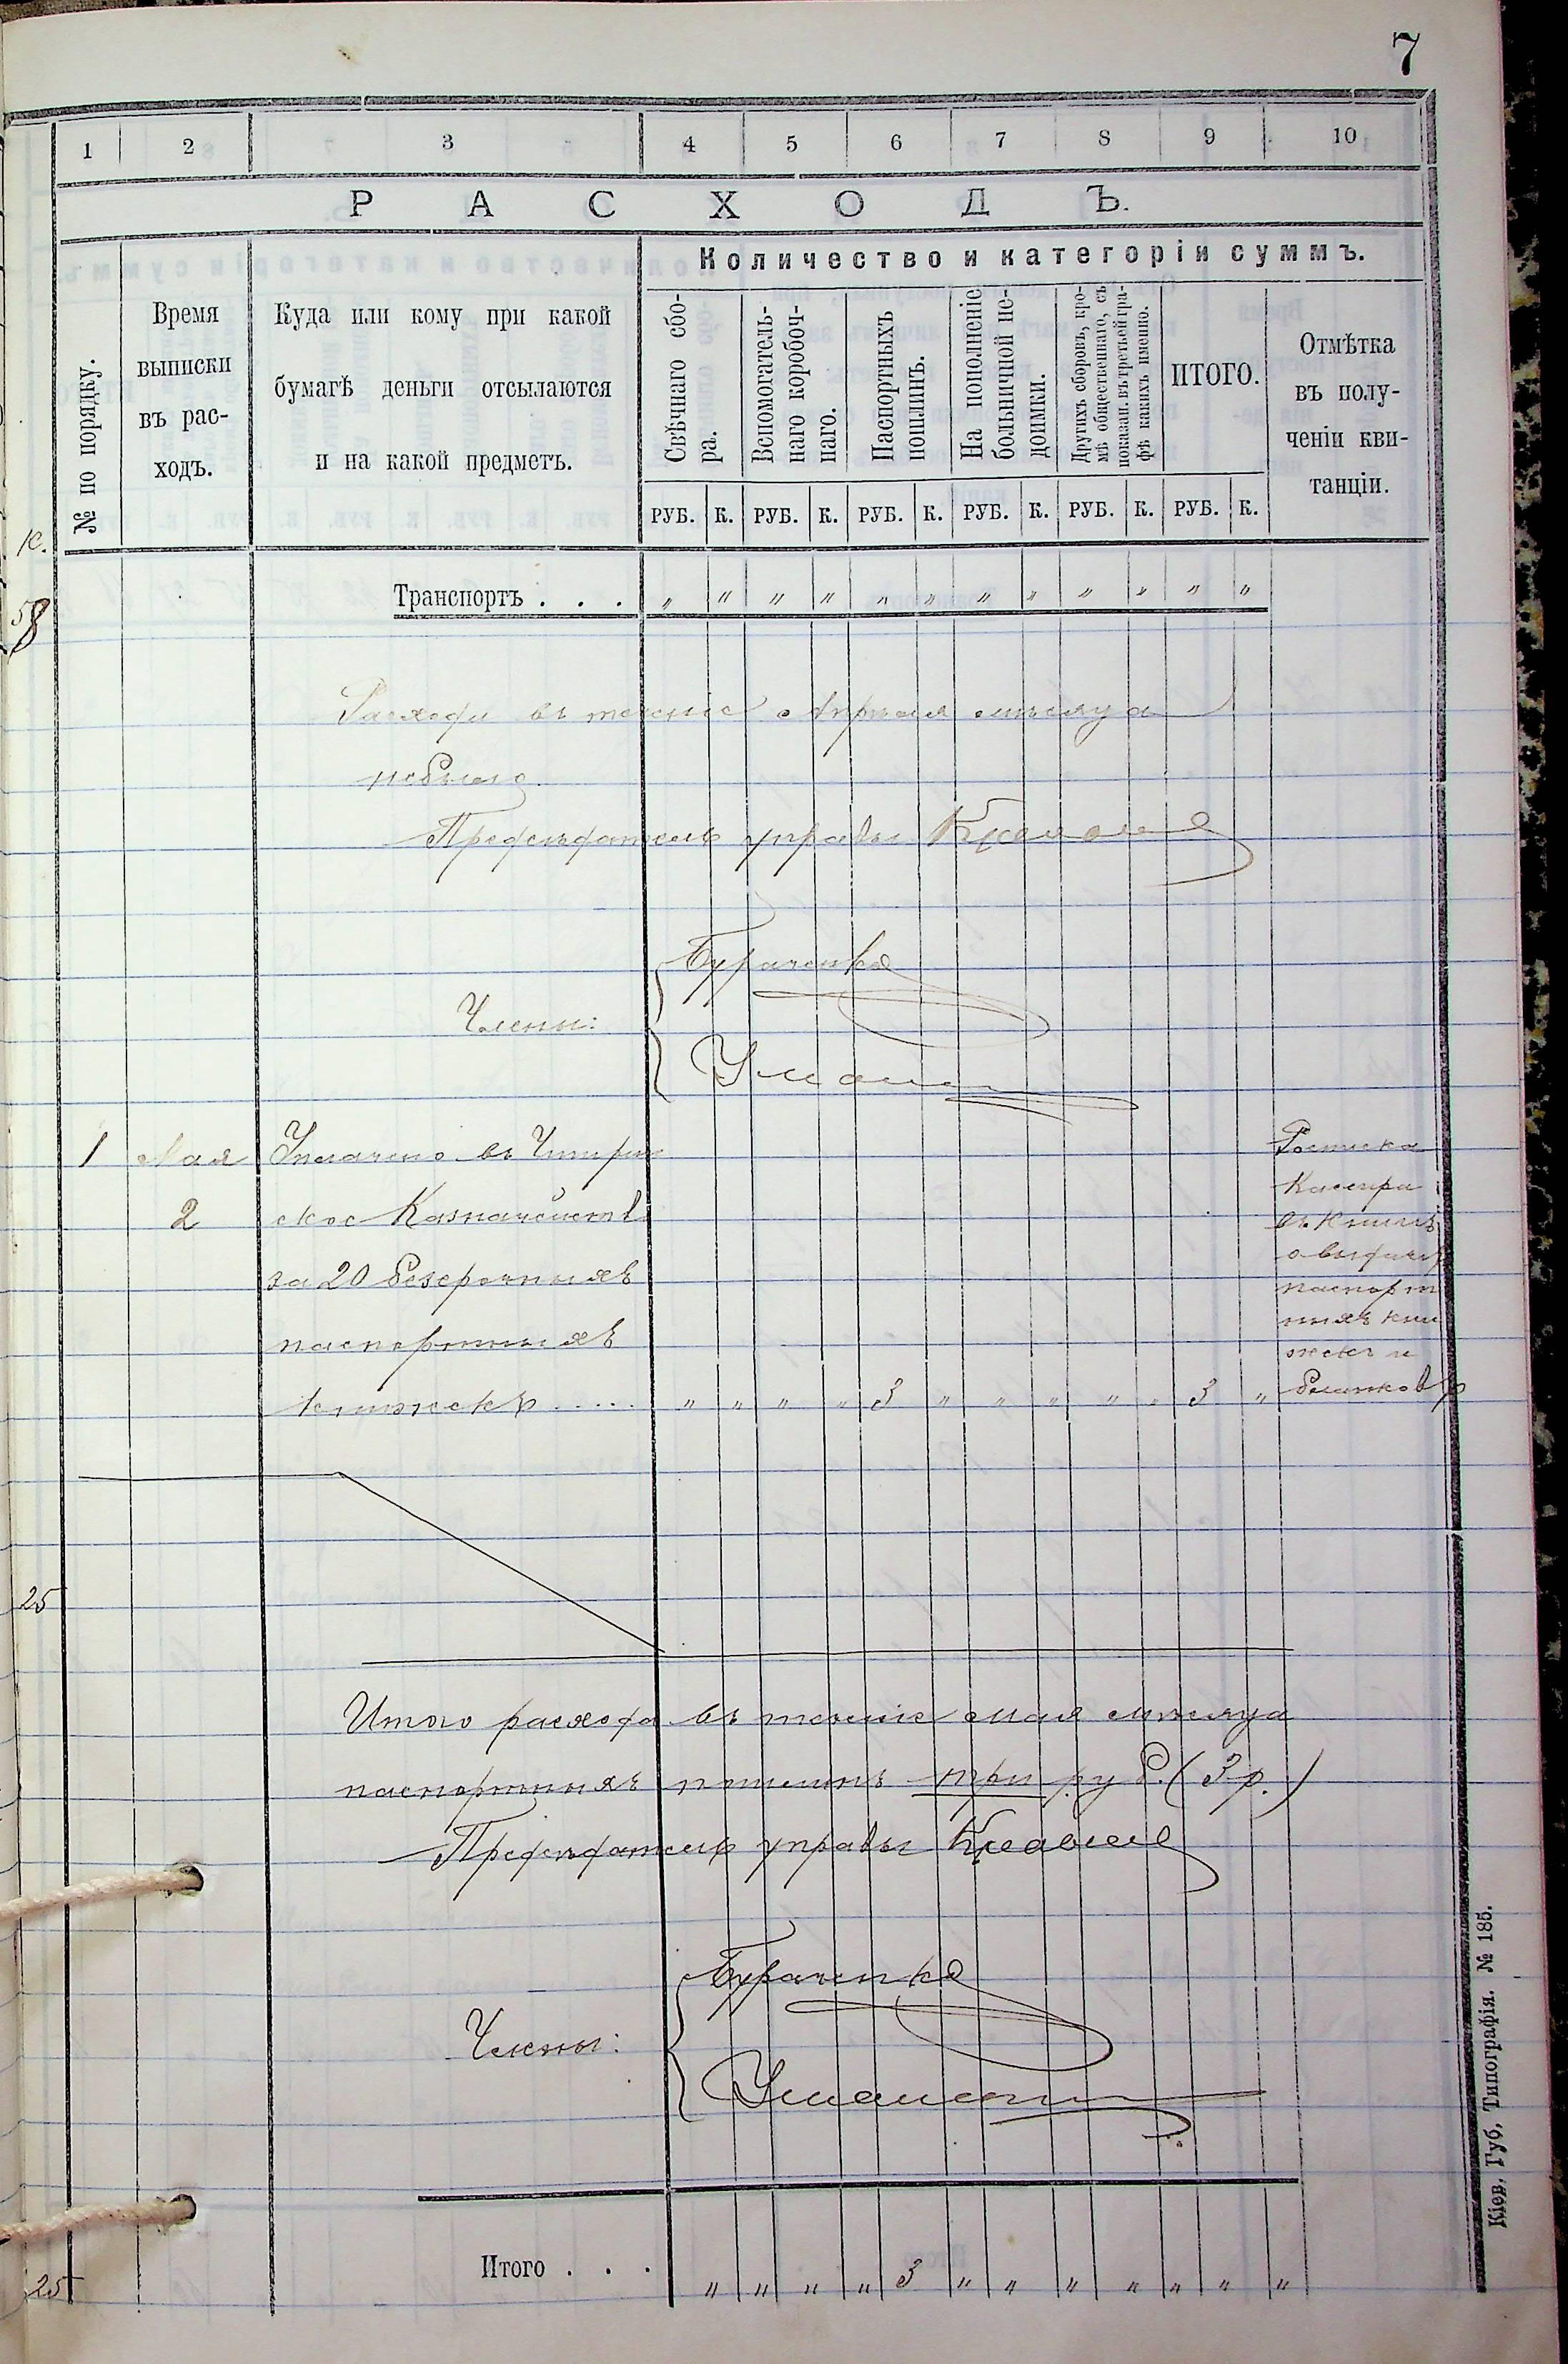 7
1 2 3 4 5 6 7 8 9 10
РАСХОДЪ.
№ по порядку.
Время
выписки
въ рас-
ходъ.
Куда или кому при какой
бумагѣ деньги отсылаются
и на какой предметъ.
Количество и категоріи суммъ.
Свѣчнаго сбо-
ра.
Вспомогатель-
наго коробоч-
наго.
Паспортныхъ
пошлинъ.
На пополненіе
больничной не-
доимки.
Другихъ сборовъ, кро-
мѣ общественнаго, съ
показан. въ третьей гра-
фѣ какихъ именно.
ИТОГО.
Отмѣтка
въ полу-
ченіи кви-
танціи.
РУБ. К. РУБ. К. РУБ. К. РУБ. К. РУБ. К. РУБ. К.
к.
58
Транспортъ . . . „ „ „ „ „ „ „ „ „ „ „ „
Расхода въ теченіе Апрѣля мѣсяца
небыло.
Предсѣдатель управы
Бураченко
Члены:
Уманскі
1 Мая Уплачено въ Чигирин
2 ское Казначейств
за 20 безсрочныхъ
паспортныхъ
книжекъ ..... „ „ „ „ 3 „ „ „ „ „ 3 „
Росписка
Кассира
въ книгѣ
о выдачѣ
паспорт
ныхъ кни
жекъ и
бланковъ
25
Итого расхода въ теченіе мая мѣсяца
паспортныхъ пошлинъ три руб. (3 р.)
Предсѣдатель управы
Бураченко
Члены:
Уманскі
Итого . . . „ „ „ „ 3 „ „ „ „ „ „ „
25
Кіев. Губ. Типографія. № 185.